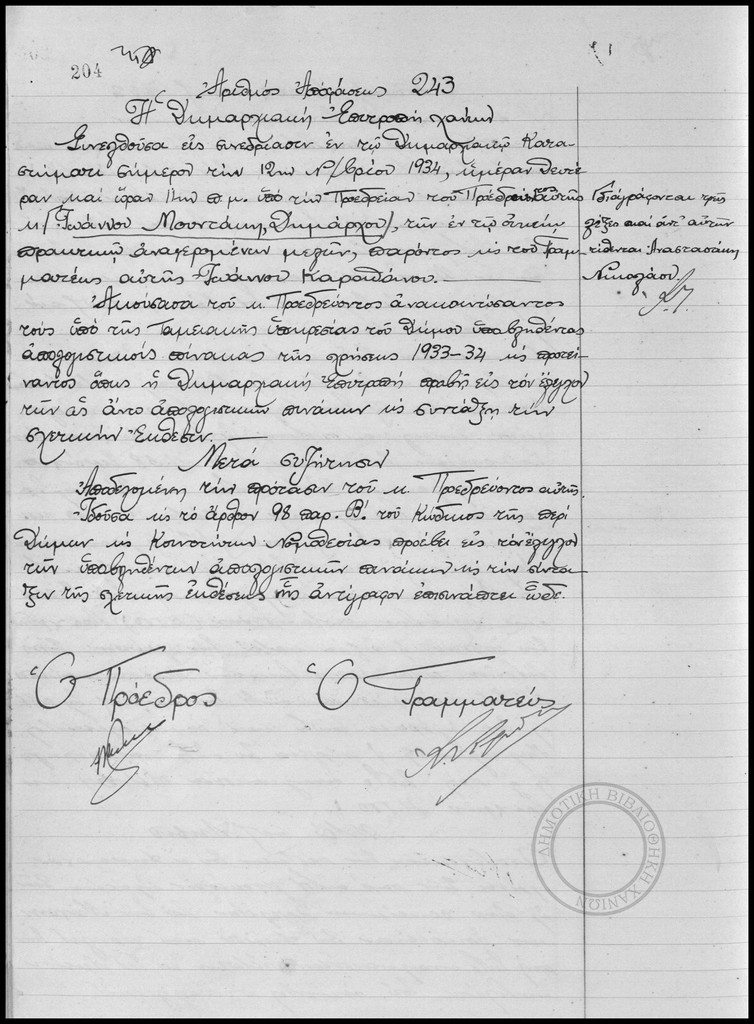 204
Ἀριθμὸς Ἀποφάσεως 243
Ἡ Δημαρχιακὴ Ἐπιτροπὴ Χανίων
Συνελθοῦσα εἰς συνεδρίασιν ἐν τῷ Δημαρχιακῷ Κατα-
στήματι σήμερον τὴν 12ην Ν/βρίου 1934, ἡμέραν Δευτέ-
ραν καὶ ὥραν 11ην π.μ. ὑπὸ τὴν Προεδρείαν τοῦ Προέδρου αὐτῆς
κ. Ἰωάννου Μουντάκη, Δημάρχου, τῶν ἐν τῷ οἰκείῳ
πρακτικῷ ἀναφερομένων μελῶν, παρόντος κ τοῦ Γραμ-
ματέως αὐτῆς Ἰωάννου Καραθάνου.
Διαγράφονται τρεῖς
λέξεις καὶ ἀντ' αὐτῶν
τίθενται Ἀναστασάκη
Νικολάου
Ἀκούσασα τοῦ κ. Προεδρεύοντος ἀνακοινώσαντος
τοὺς ὑπὸ τῆς Ταμειακῆς ὑπηρεσίας τοῦ Δήμου ὑποβληθέντας
ἀπολογιστικοὺς πίνακας τῆς χρήσεως 1933-34 κ προτεί-
ναντος ὅπως ἡ Δημαρχιακὴ Ἐπιτροπὴ προβῇ εἰς τὸν ἔλεγχον
τῶν ὡς ἄνω ἀπολογιστικῶν πινάκων κ συντάξῃ τὴν
σχετικὴν Ἔκθεσιν.
Μετὰ συζήτησιν
Ἀποδεχομένη τὴν πρότασιν τοῦ κ. Προεδρεύοντος αὐτῆς
Ἰδοῦσα κ τὸ ἄρθρον 98 παρ. Β΄. τοῦ Κώδικος τῆς περὶ
Δήμων κ Κοινοτήτων Νομοθεσίας προέβη εἰς τὸν ἔλεγχον
τῶν ὑποβληθέντων ἀπολογιστικῶν πινάκων κ τὴν σύντα-
ξιν τῆς σχετικῆς ἐκθέσεως ἧς ἀντίγραφον ἐπισυνάπτει ὧδε.
Ὁ Πρόεδρος
Ὁ Γραμματεύς
ΔΗΜΟΤΙΚΗ ΒΙΒΛΙΟΘΗΚΗ ΧΑΝΙΩΝ